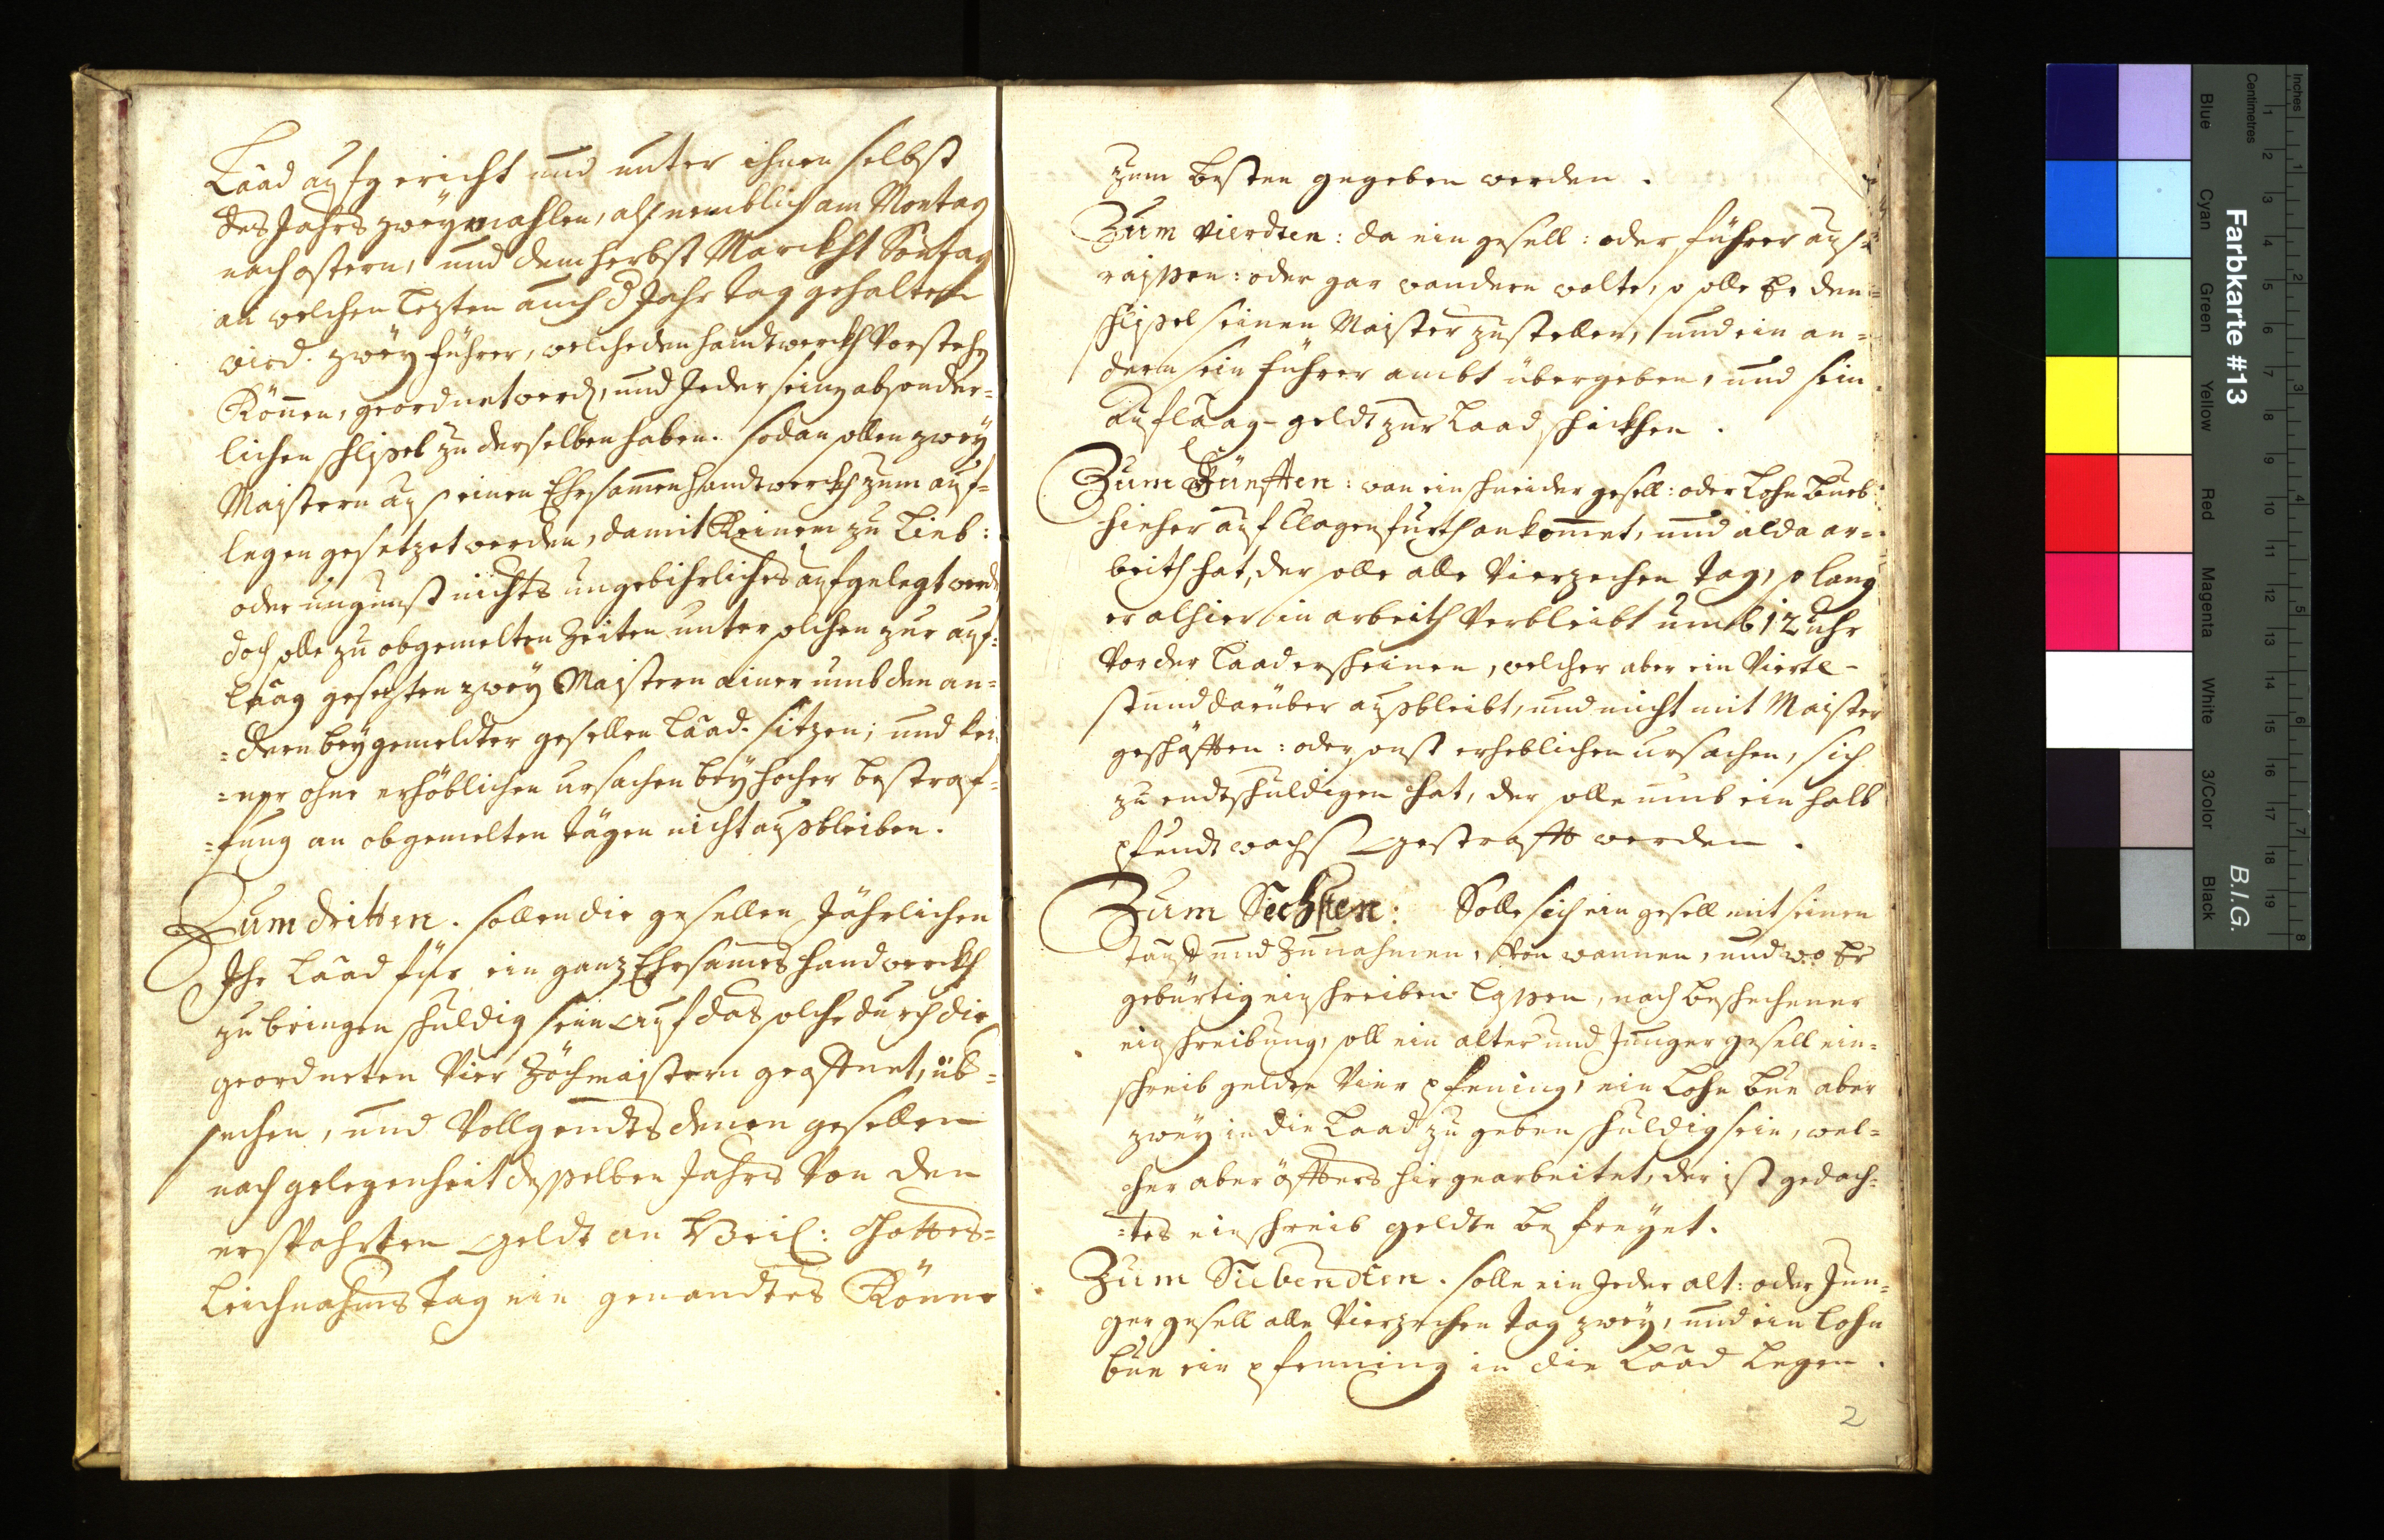 Laad aufgericht und unter ihnen selbst
des Jahrs zweÿmahlen, alß nemblich am Montag
nach ostern, und dem herbst Marckht Sontag
an welchen lezten auch d Jahr tag gehalten
wird. zweÿ führer, welche den handtwerckh Vorstehn
Können, geordnet werdn, und Jeder seinen absonder=
lichen schlissel zu derselben haben. sodan sollen zweÿ
Maistern auß einen Ehrsamen handtwerckh zum auf=
legen gesetzet werden, damit Keinem zu Lieb:
oder ungunst nichts ungebihrliches aufgelegt werde
doch solle zu obgemelten Zeiten unter solchen zur auf=
laag gesezten zweÿ Maistern ainer umb den an=
=dern beÿ gemeldter gesellen Laad sitzen; und kei
=ner ohne erhöblichen ursachen beÿ hocher bestraf=
=fung an obgemelten tägen nicht außbleiben.
Zum dritten. sollen die gesellen Jährlichen
Ihr Laad für ein ganz Ehrsames handwerckh
zu bringen schuldig sein auf das solche durch die
geordneten Vier Zöchmaistern geöffnet, üb=
sechen, und Vollgendts denen gesellen
nach gelegenheit desselben Jahrs Von den
erspahrten geldt an Heil: Gottes=
leichnahms tag ein genandtes Könne
zum besten gegeben werden.
Zum vierdten: da ein gesell: oder führer auß=
raissen: oder gar wandern wolte, so solle Er den
schlissel seinen Maister zustellen, und ein an=
dern sein führer ambt übergeben, und sein
auflaag-geldt zur Laad schickhen.
Zum Fünfften: wan ein schneider gesell: oder Lohn Bueb
hieher auf Clagenfurth ankomet, und alda ar=
beith hat, der solle alle Vierzechen tag, so lang
er alhier in arbeith Verbleibt umb 12 uhr
Vor der Laad erscheinen, welcher aber ein Viertl-
stund darüber außbleibt, und nicht mit Maister
geschäfften: oder sonst erheblichen ursachen, sich
zu endtschuldigen hat, der solle umb ein halb
pfundt wachß gestrafft werden.
Zum Sechsten: Solle sich ein gesell mit seinen
tauf und Zunahmen, Von wannen, und wo Er
gebürtig einschreiben lassen, nach beschechener
einschreibung, soll ein alter und Junger gesell ein=
schreib geldte Vier pfening, ein Lohn bue aber
zweÿ in die Laad zu geben schuldig sein, wel=
cher aber öffters hir gearbeitet, der ist gedach=
=tes einschreib geldte befreÿet.
Zum Siebendten. solle ein Jeder alt: oder Jun=
ger gesell alle Vierzechen tag zweÿ, und ein Lohn
bue ein pfenning in die Laad Legen.
2
Farbkarte #13
B.I.G.
Inches
Centimetres
Blue
Cyan
Green
Yellow
Red
Magenta
White
3/Color
Black
1 2 3 4 5 6 7 8 9 10 11 12 13 14 15 16 17 18 19
1 2 3 4 5 6 7 8